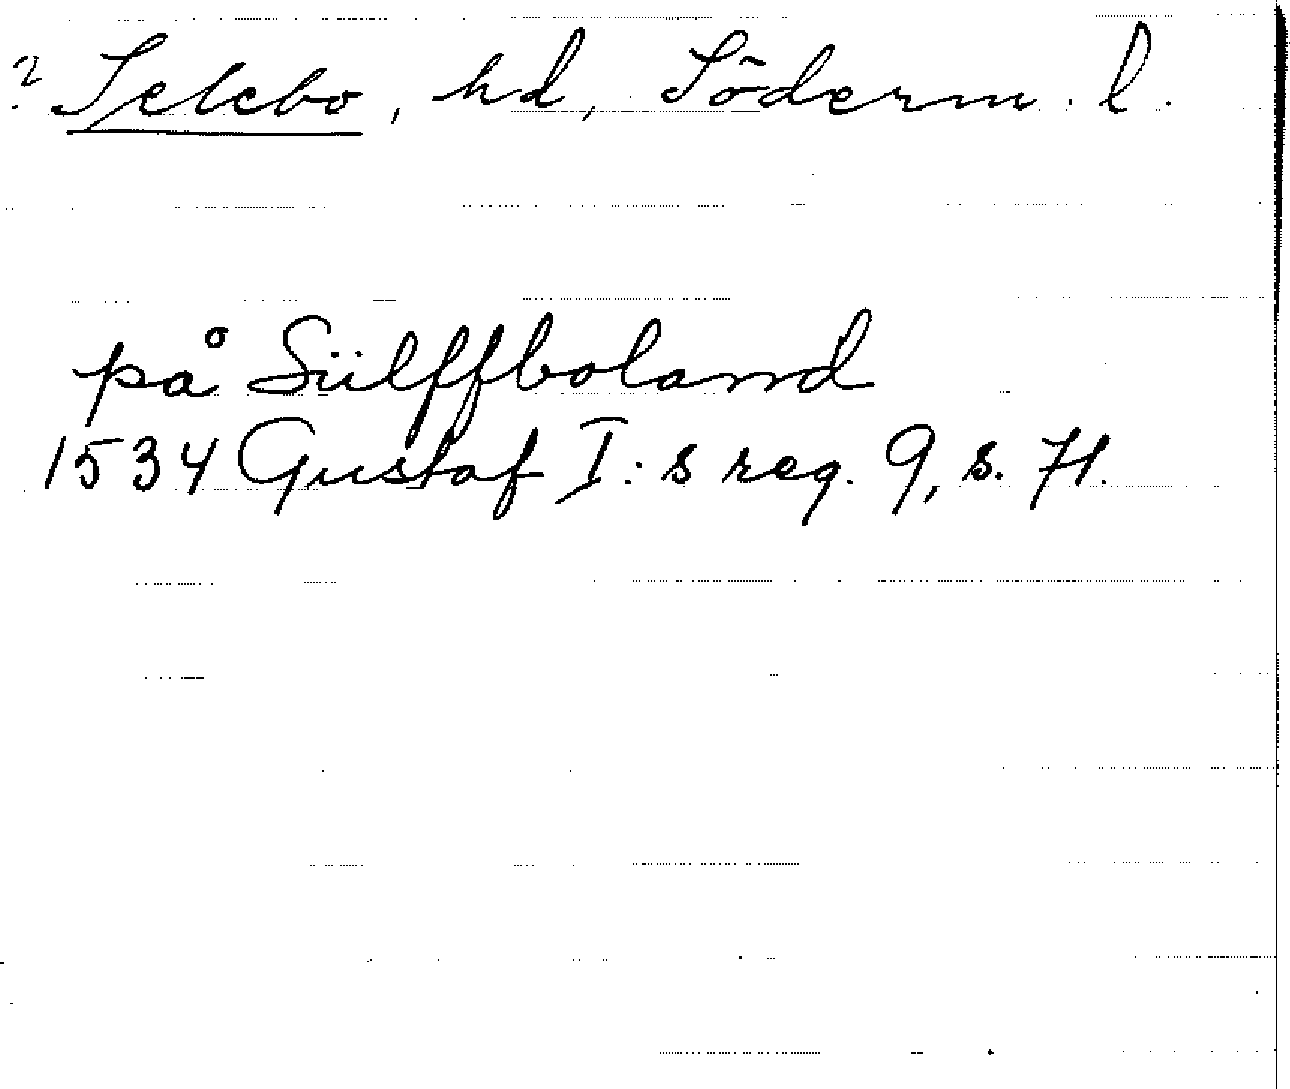 ? Selebo, hd, Söderm. l.
på Sülffboland
1534 Gustaf I:s reg. 9, s. 71.